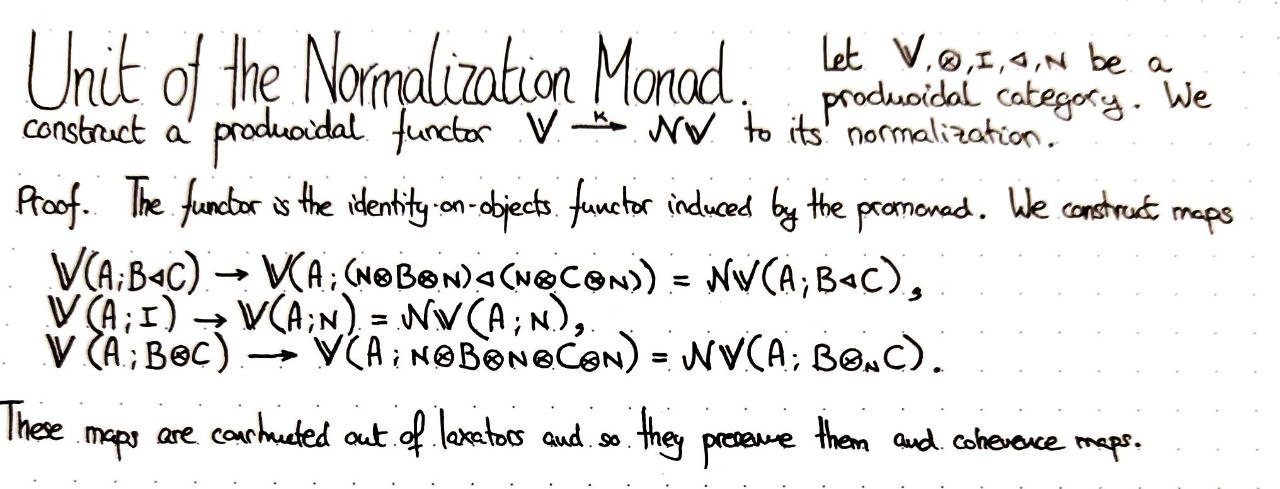 Unit of the Normalization Monad. Let 𝕍,⊗,I,◁,N be a
produoidal category. We
construct a produoidal functor 𝕍 —κ→ 𝒩𝕍 to its normalization.
Proof. The functor is the identity-on-objects functor induced by the promonad. We construct maps
𝕍(A;B◁C) → 𝕍(A;(N⊗B⊗N)◁(N⊗C⊗N)) = 𝒩𝕍(A;B◁C),
𝕍(A;I) → 𝕍(A;N) = 𝒩𝕍(A;N),
𝕍(A;B⊗C) → 𝕍(A;N⊗B⊗N⊗C⊗N) = 𝒩𝕍(A;B⊗ₙC).
These maps are constructed out of laxators and so they preserve them and coherence maps.